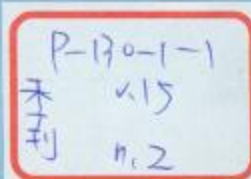 P-130-1-1
季刊
v.15
n.2